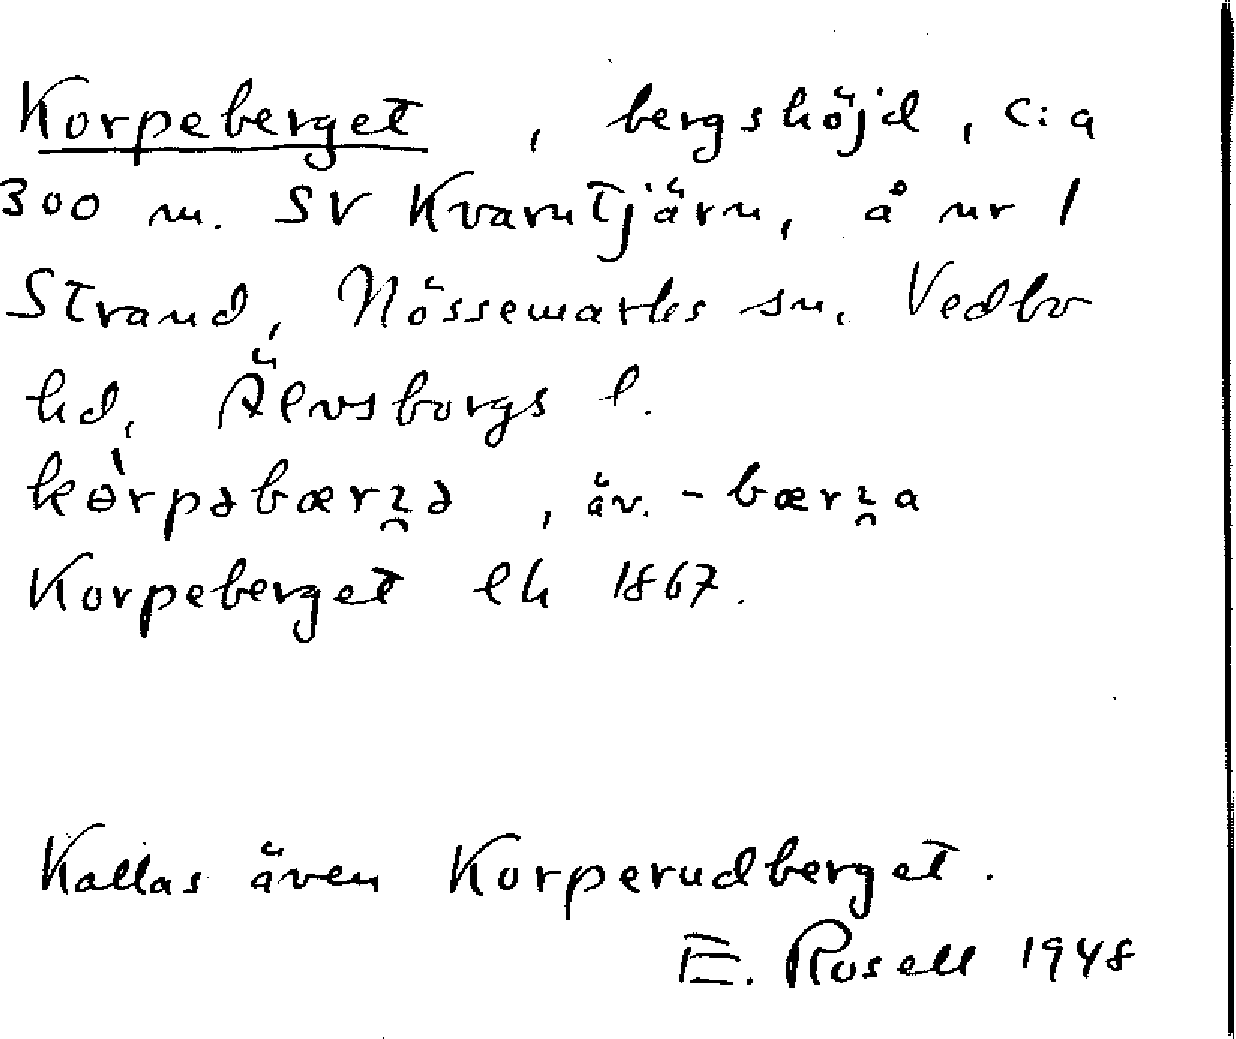 Korpeberget , bergshöjd, c:a
300 m. SV Kvarntjärn, å nr 1
Strand, Nössemarks sn. Vedbo
hd, Älvsborgs l.
kɵ̀rpəbærʐ̯ə , äv. -bærʐ̯a
Korpeberget Eh 1867.
Kallas även Korperudberget.
E. Rosell 1948